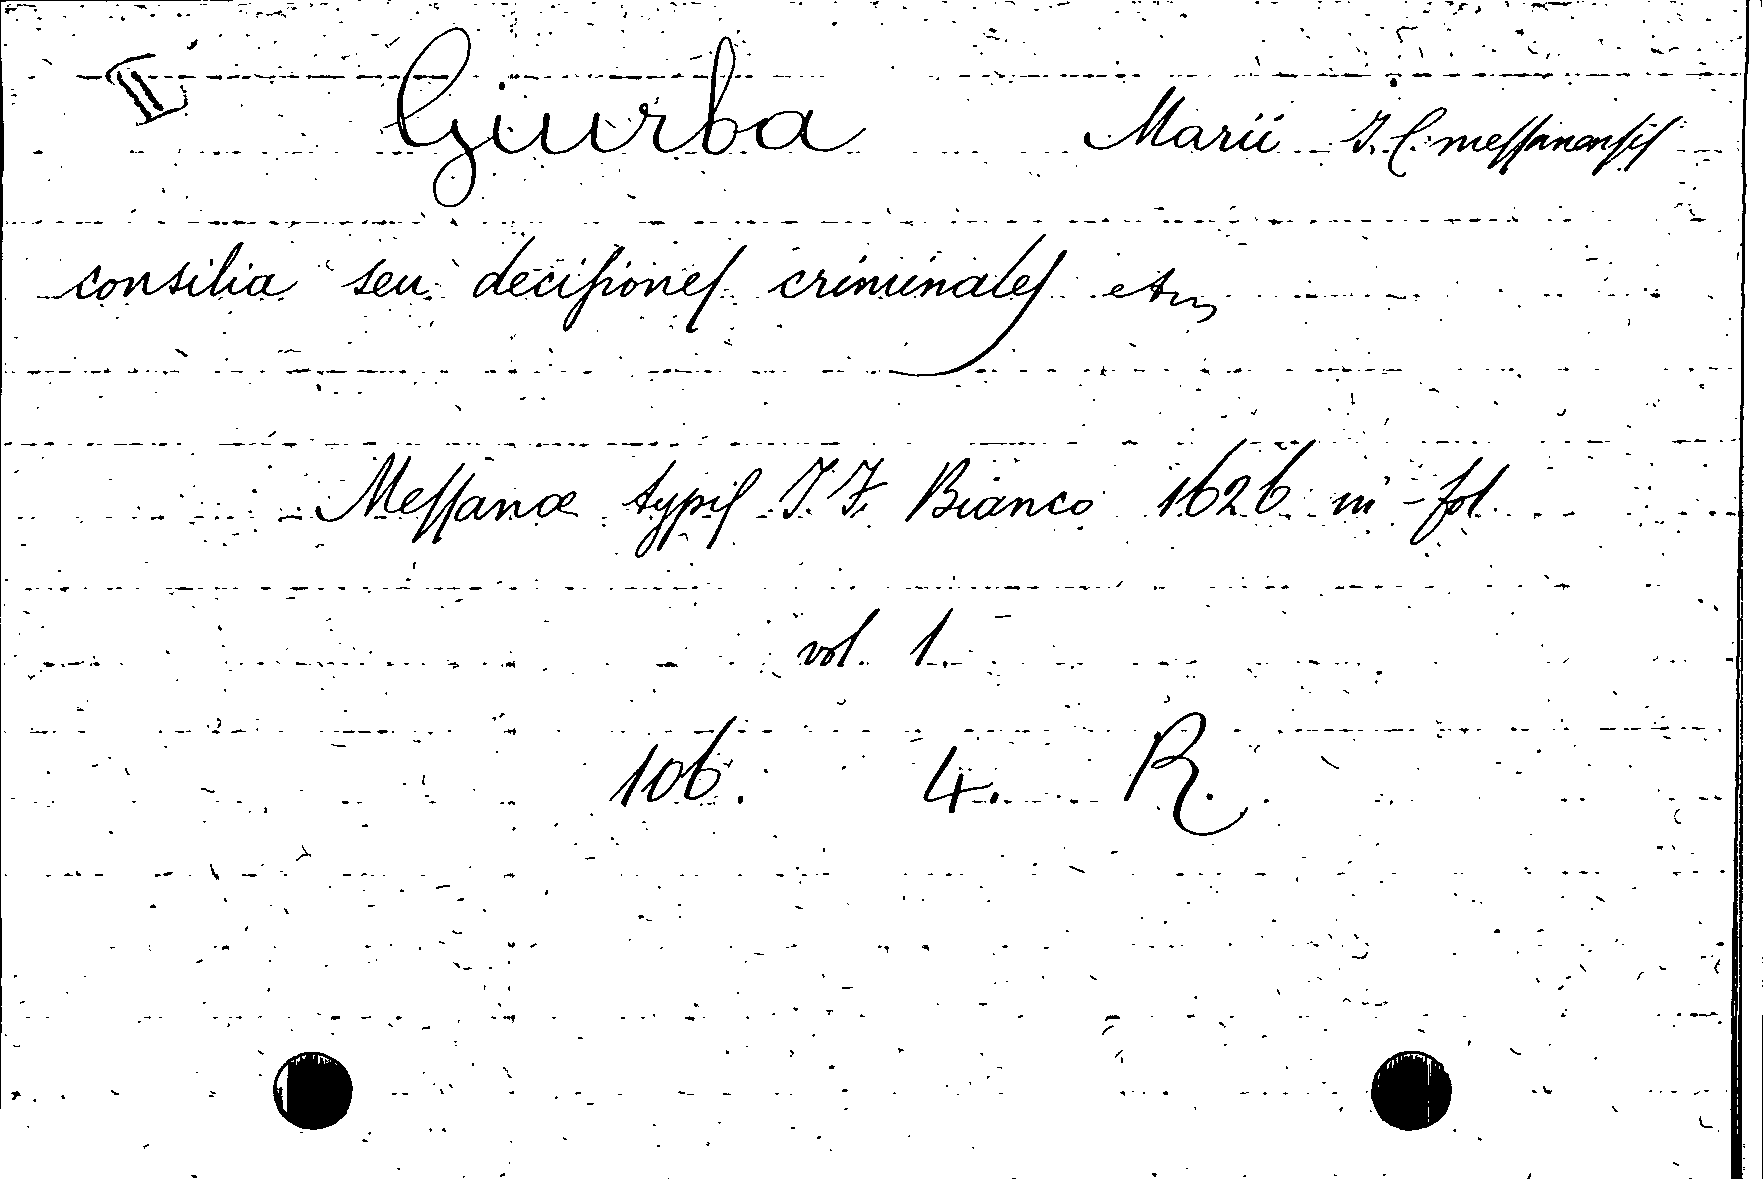 II Giurba Marii J. C. messanensis
consilia seu decisiones criminales etc
Messanæ typis J. F. Bianco 1626 in-fol.
vol. 1.
106. 4. R.